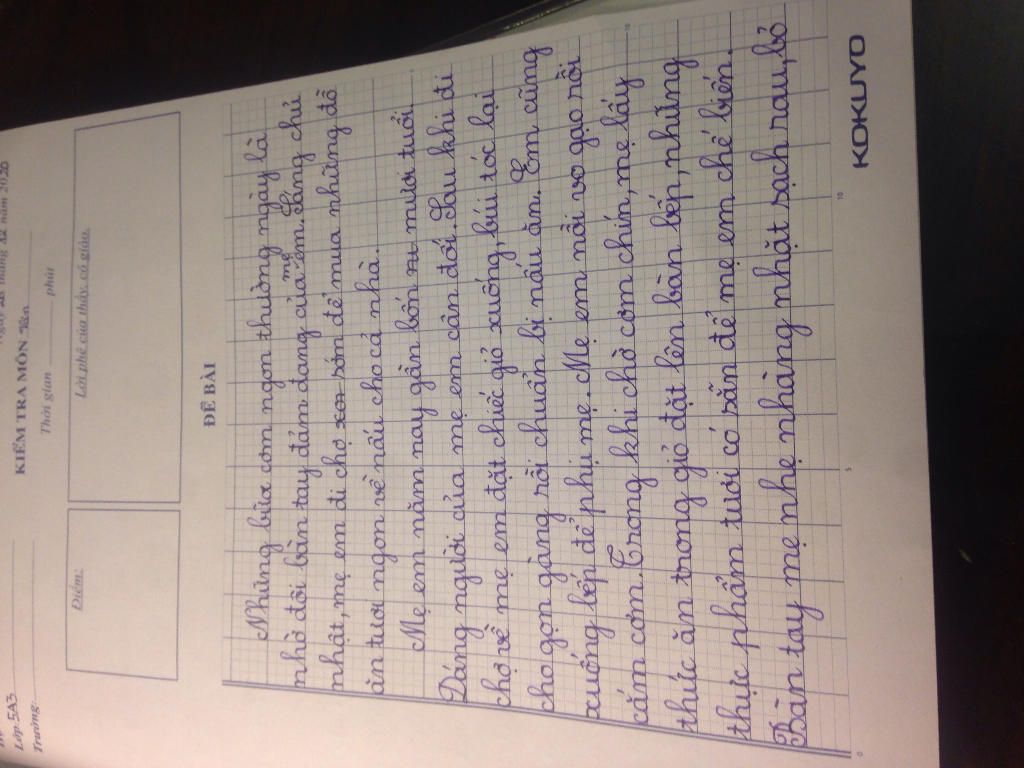 Ngày 28 tháng 12 năm 2020
Lớp: 5A3
KIỂM TRA MÔN Văn
Trường:
Thời gian phút
Điểm:
Lời phê của thầy, cô giáo.
ĐỀ BÀI
Những bữa cơm ngon thường ngày là
nhờ đôi bàn tay đảm đang của mẹ em. Sáng chủ
nhật, mẹ em đi chợ sớm để mua những đồ
ăn tươi ngon về nấu cho cả nhà.
Mẹ em năm nay gần bốn mươi tuổi.
Dáng người của mẹ em cân đối. Sau khi đi
chợ về mẹ em đặt chiếc giỏ xuống, búi tóc lại
cho gọn gàng rồi chuẩn bị nấu ăn. Em cũng
xuống bếp để phụ mẹ. Mẹ em nồi vo gạo rồi
cắm cơm. Trong khi chờ cơm chín, mẹ lấy
thức ăn trong giỏ đặt lên bàn bếp, những
thực phẩm tươi có sẵn để mẹ em chế biến.
Bàn tay mẹ nhẹ nhàng nhặt sạch rau, bỏ
0
5
10
15
KOKUYO